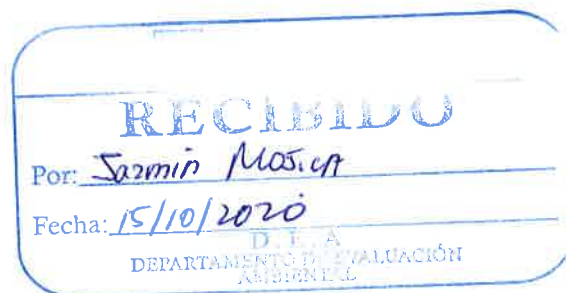 RECIBIDO
Por: Jazmin Mojica
Fecha: 15/10/2020
D. E. A
DEPARTAMENTO DE EVALUACIÓN
AMBIENTAL